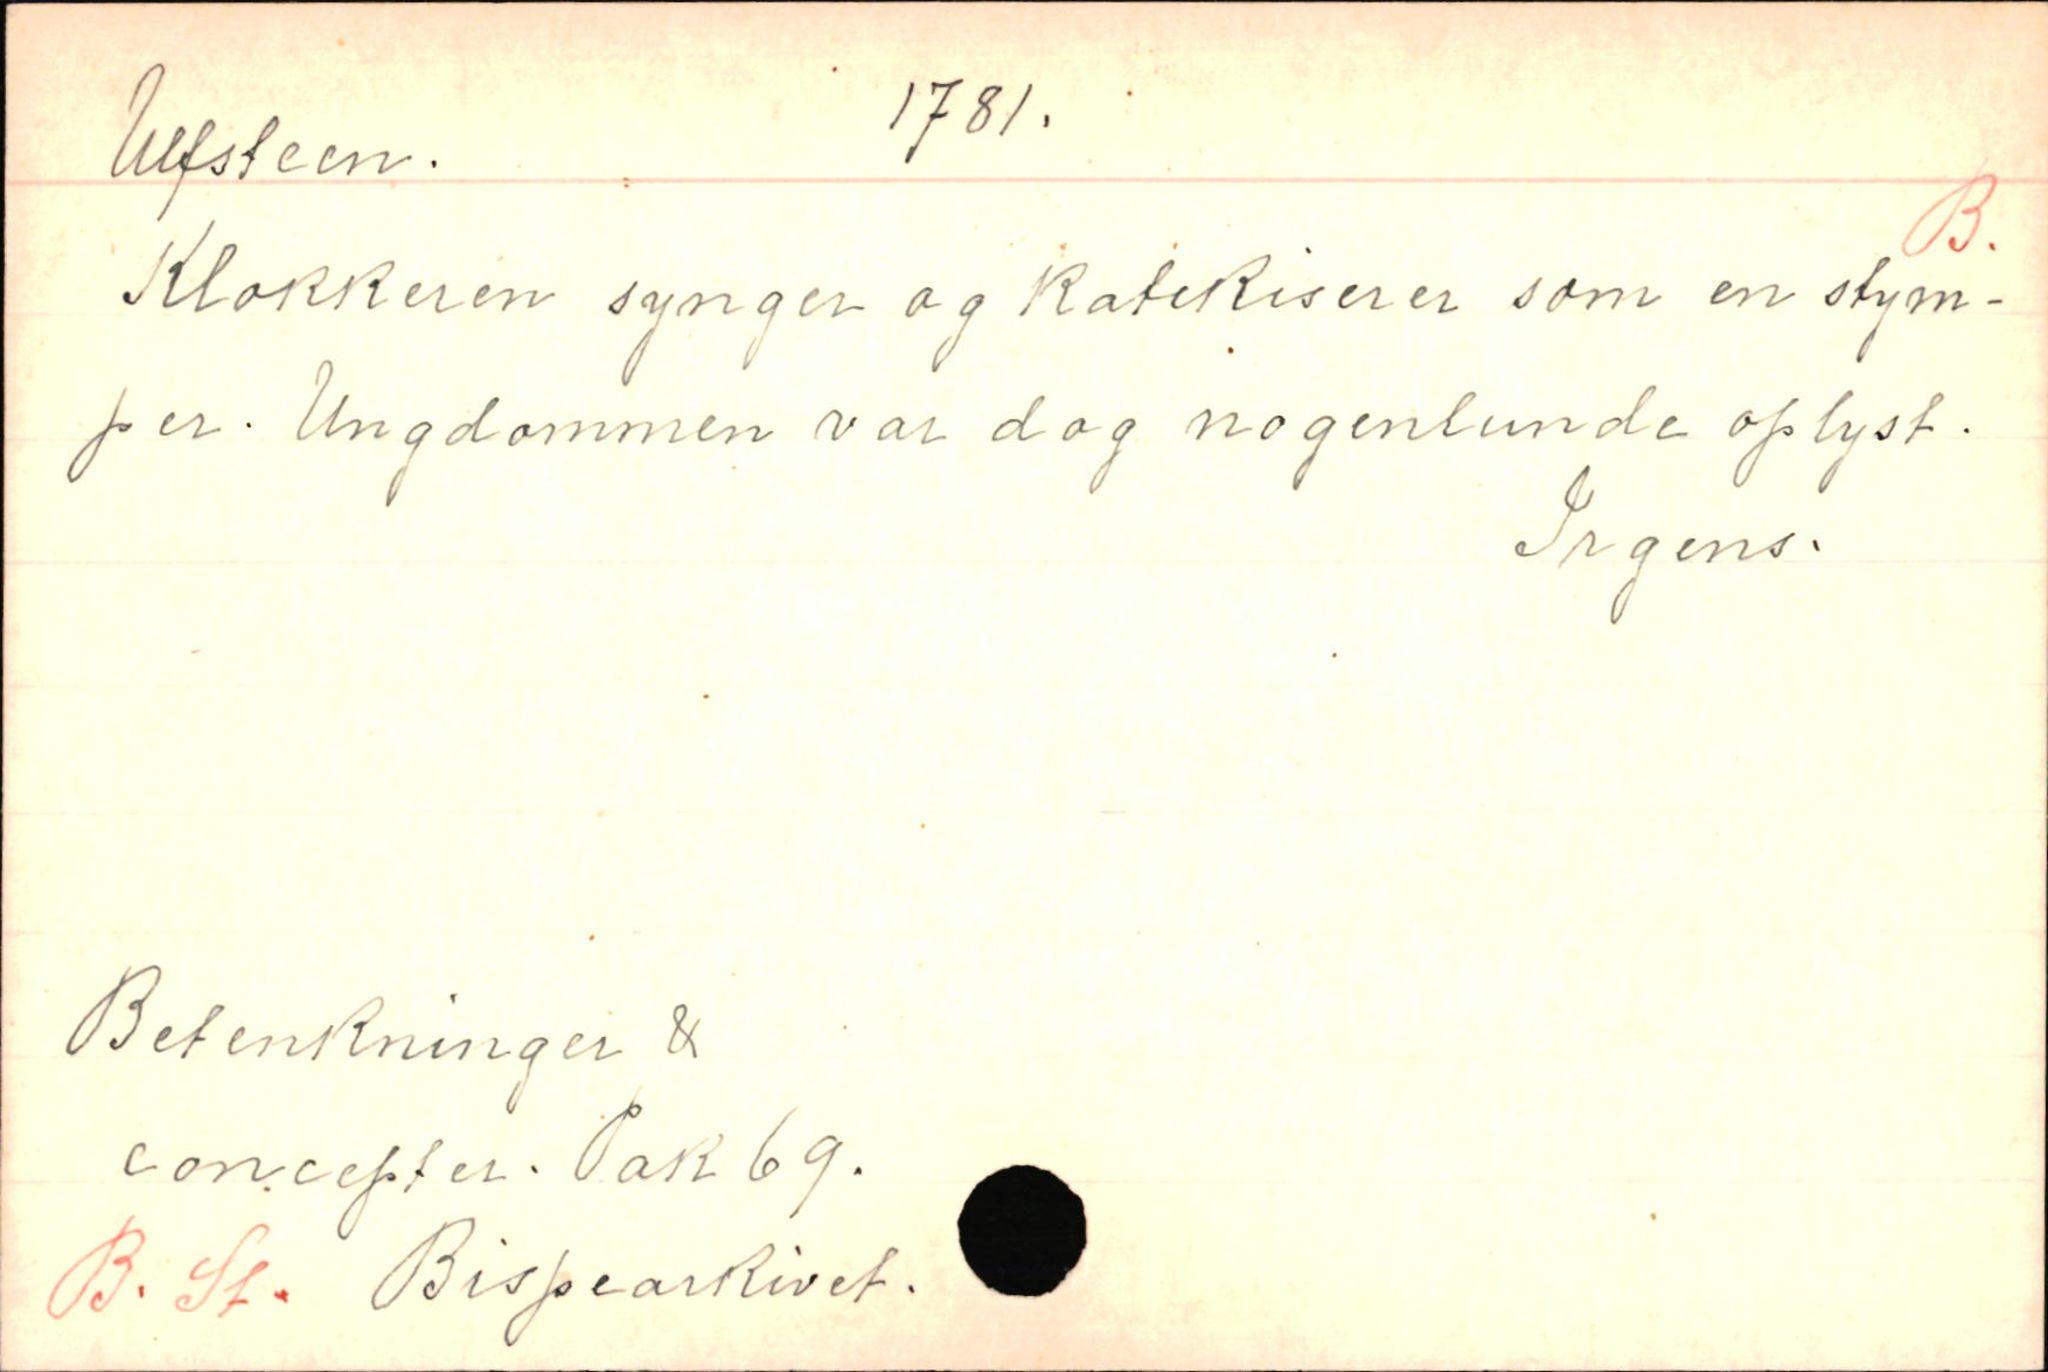 Ulfsteen. 1781.
B.
Klokkeren synger og katekiserer som en stym-
per. Ungdommen var dog nogenlunde oplyst.
Irgens.
Betenkninger &
concepter. Pak 69.
B. St. Bispearkivet.